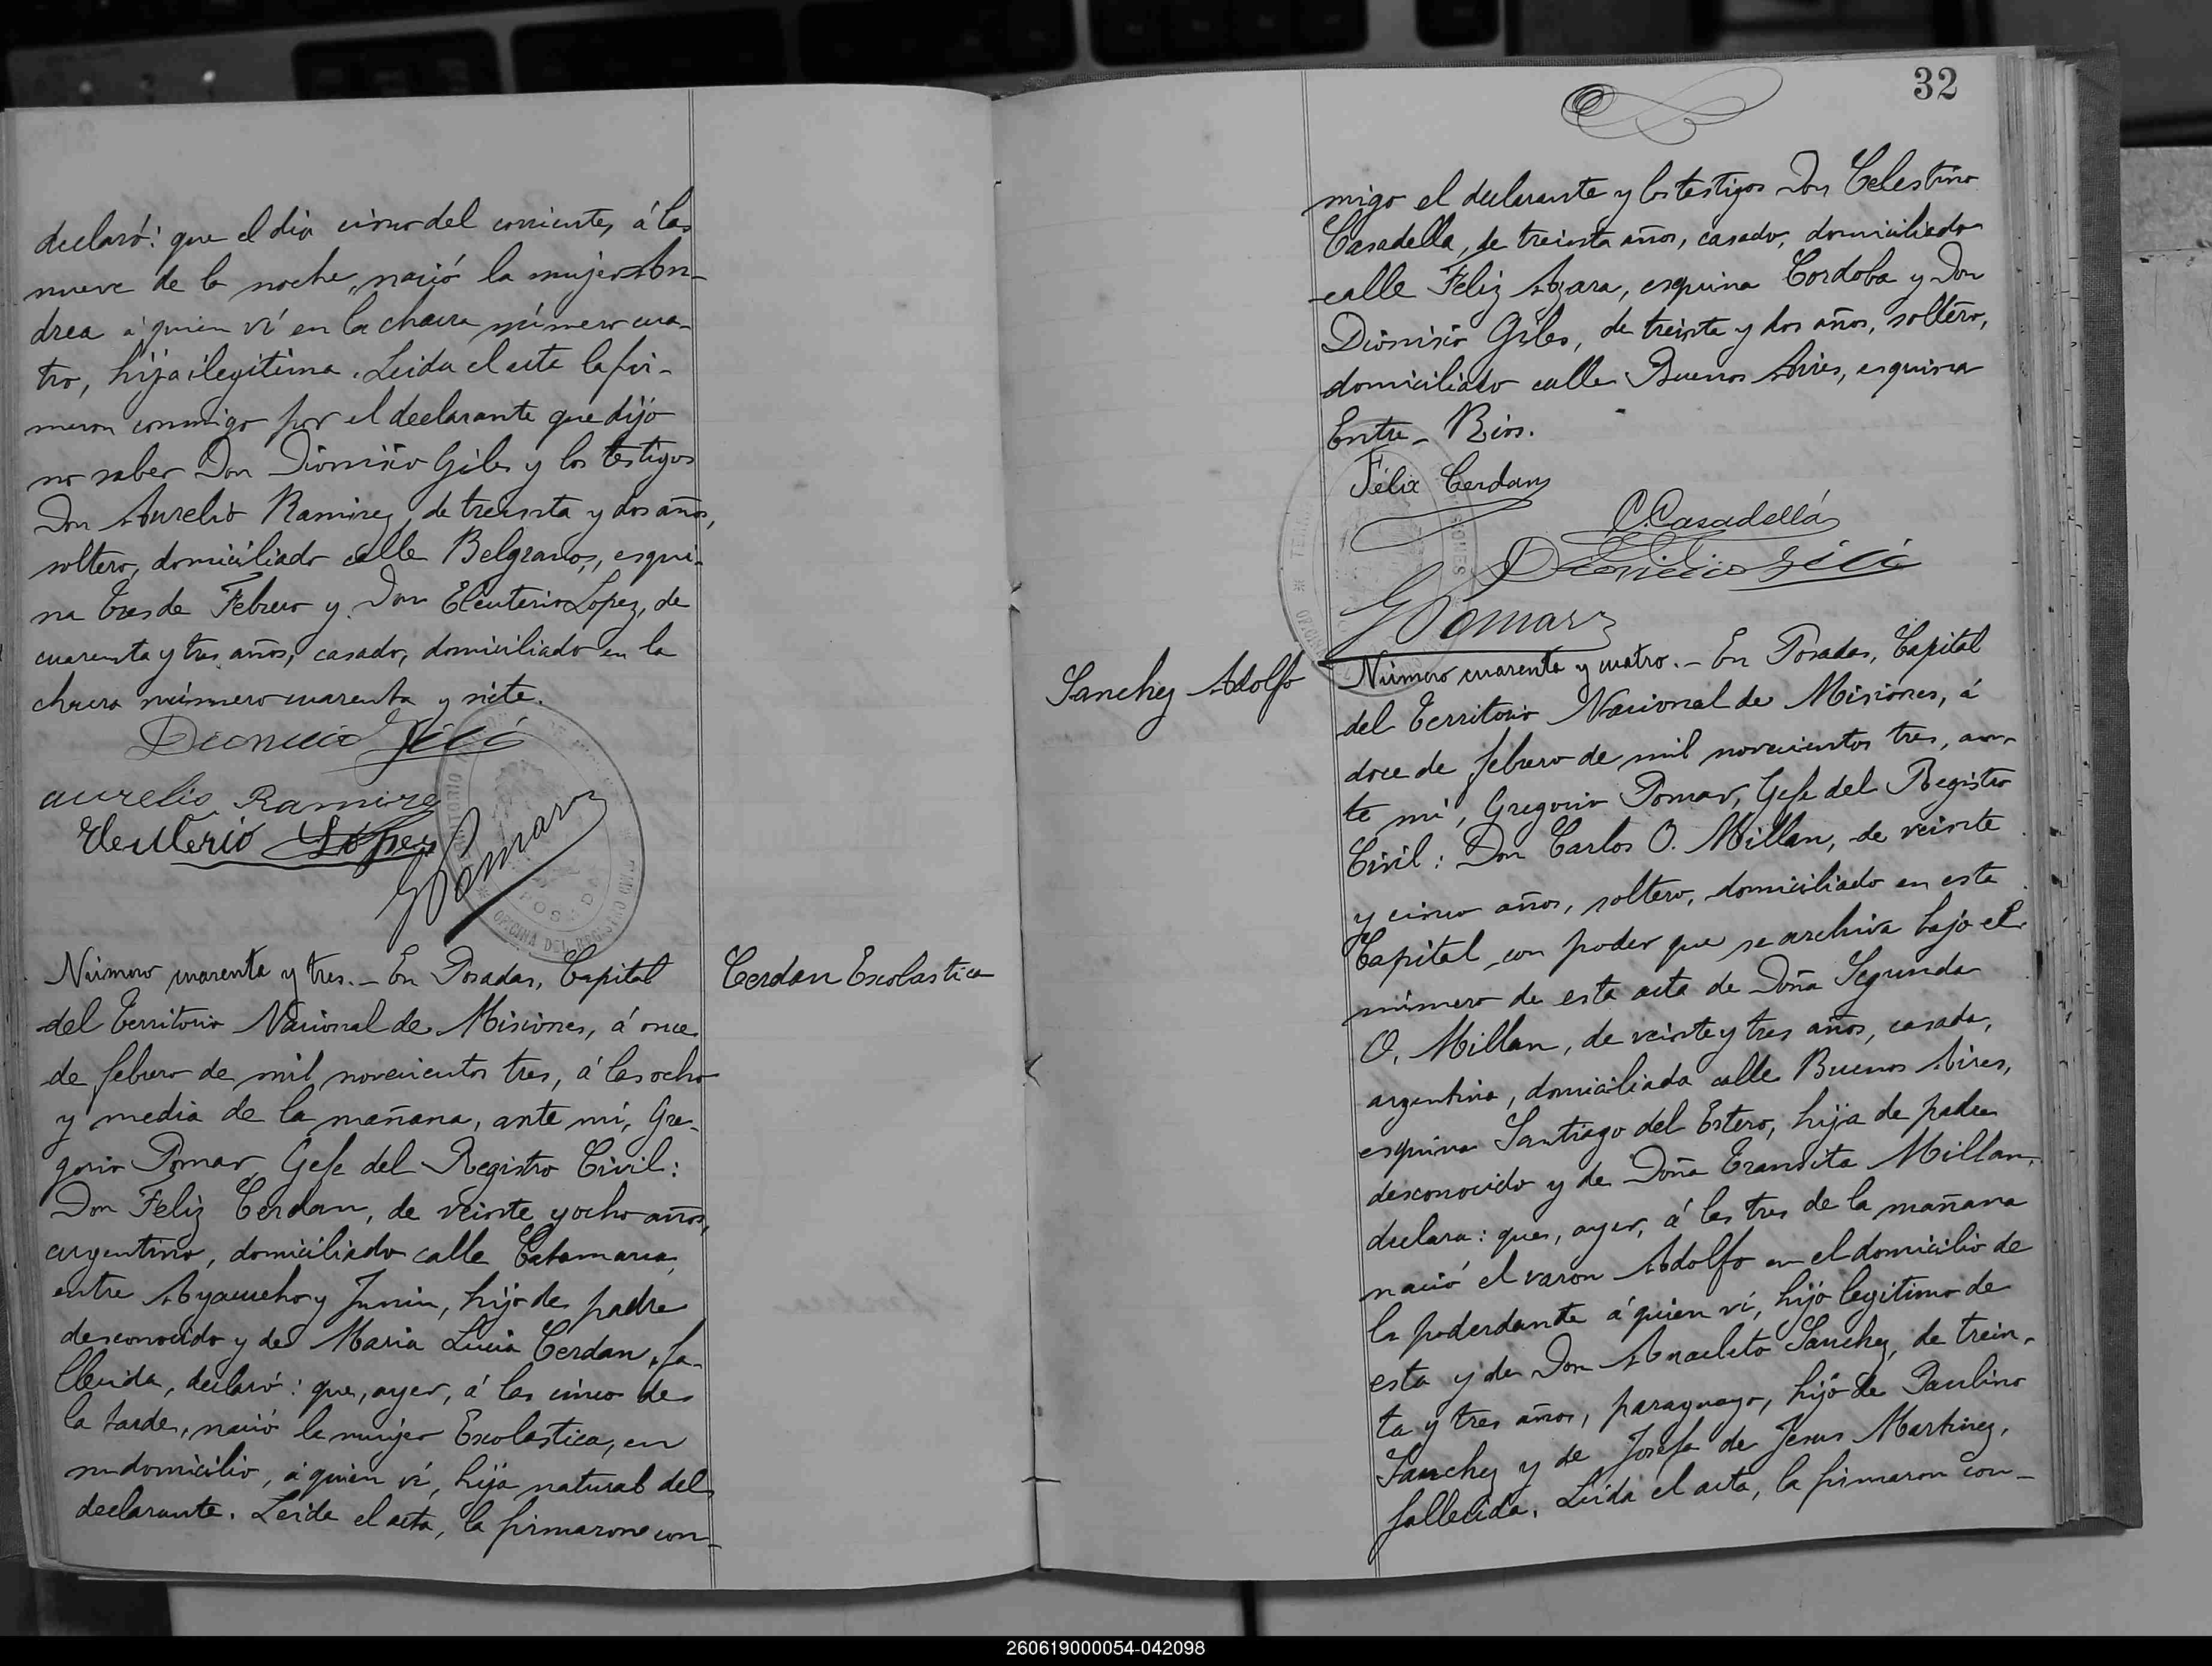 declaró: que el dia cinco del corriente, á las
nueve de la noche, nació la mujer An-
drea á quien ví en la chacra número cua-
tro, hija ilegitima. Leida el acta la fir-
maron conmigo por el declarante que dijo
no saber Don Dionisio Giles y los testigos
Don Aurelio Ramirez, de treinta y dos años,
soltero, domiciliado calle Belgrano, esqui-
na Tres de Febrero y Don Eleuterio Lopez, de
cuarenta y tres años, casado, domiciliado en la
chacra número cuarenta y siete.
aurelio Ramirez
Eleuterio Lopez
GPomar
Número cuarenta y tres.- En Posadas, Capital
del Territorio Nacional de Misiones, á once
de febrero de mil novecientos tres, á las ocho
y media de la mañana, ante mí, Gre-
gorio Pomar, Gefe del Registro Civil:
Don Feliz Cerdan, de veinte y ocho años,
argentino, domiciliado calle Catamarca,
entre Ayacucho y Junin, hijo de padre
desconocido y de Maria Lucia Cerdan, fa-
llecida, declaró: que, ayer, á las cinco de
la tarde, nació la mujer Escolastica, en
su domicilio, á quien ví, hija natural del
declarante. Leida el acta, la firmaron con-
Cerdan Escolastica
32
migo el declarante y los testigos Don Celestino
Casadella, de treinta años, casado, domiciliado
calle Feliz Azara, esquina Cordoba y Don
Dionisio Giles, de treinta y dos años, soltero,
domiciliado calle Buenos Aires, esquina
Entre-Rios.
Félix Cerdan
C. Casadellá
GPomar
Sanchez Adolfo
Número cuarenta y cuatro.- En Posadas, Capital
del Territorio Nacional de Misiones, á
doce de febrero de mil novecientos tres, an-
te mí, Gregorio Pomar, Gefe del Registro
Civil: Don Carlos O. Millan, de veinte
y cinco años, soltero, domiciliado en esta
Capital, con poder que se archiva bajo el
número de esta acta de Doña Segunda
O. Millan, de veinte y tres años, casada,
argentina, domiciliada calle Buenos Aires,
esquina Santiago del Estero, hija de padre
desconocido y de Doña Transita Millan,
declara: que, ayer, á las tres de la mañana
nació el varon Adolfo en el domicilio de
la poderdante á quien ví, hijo legitimo de
esta y de Don Anacleto Sanchez, de trein-
ta y tres años, paraguayo, hijo de Paulino
Sanchez y de Josefa de Jesus Martinez,
fallecida. Leida el acta, la firmaron con-
260619000054-042098